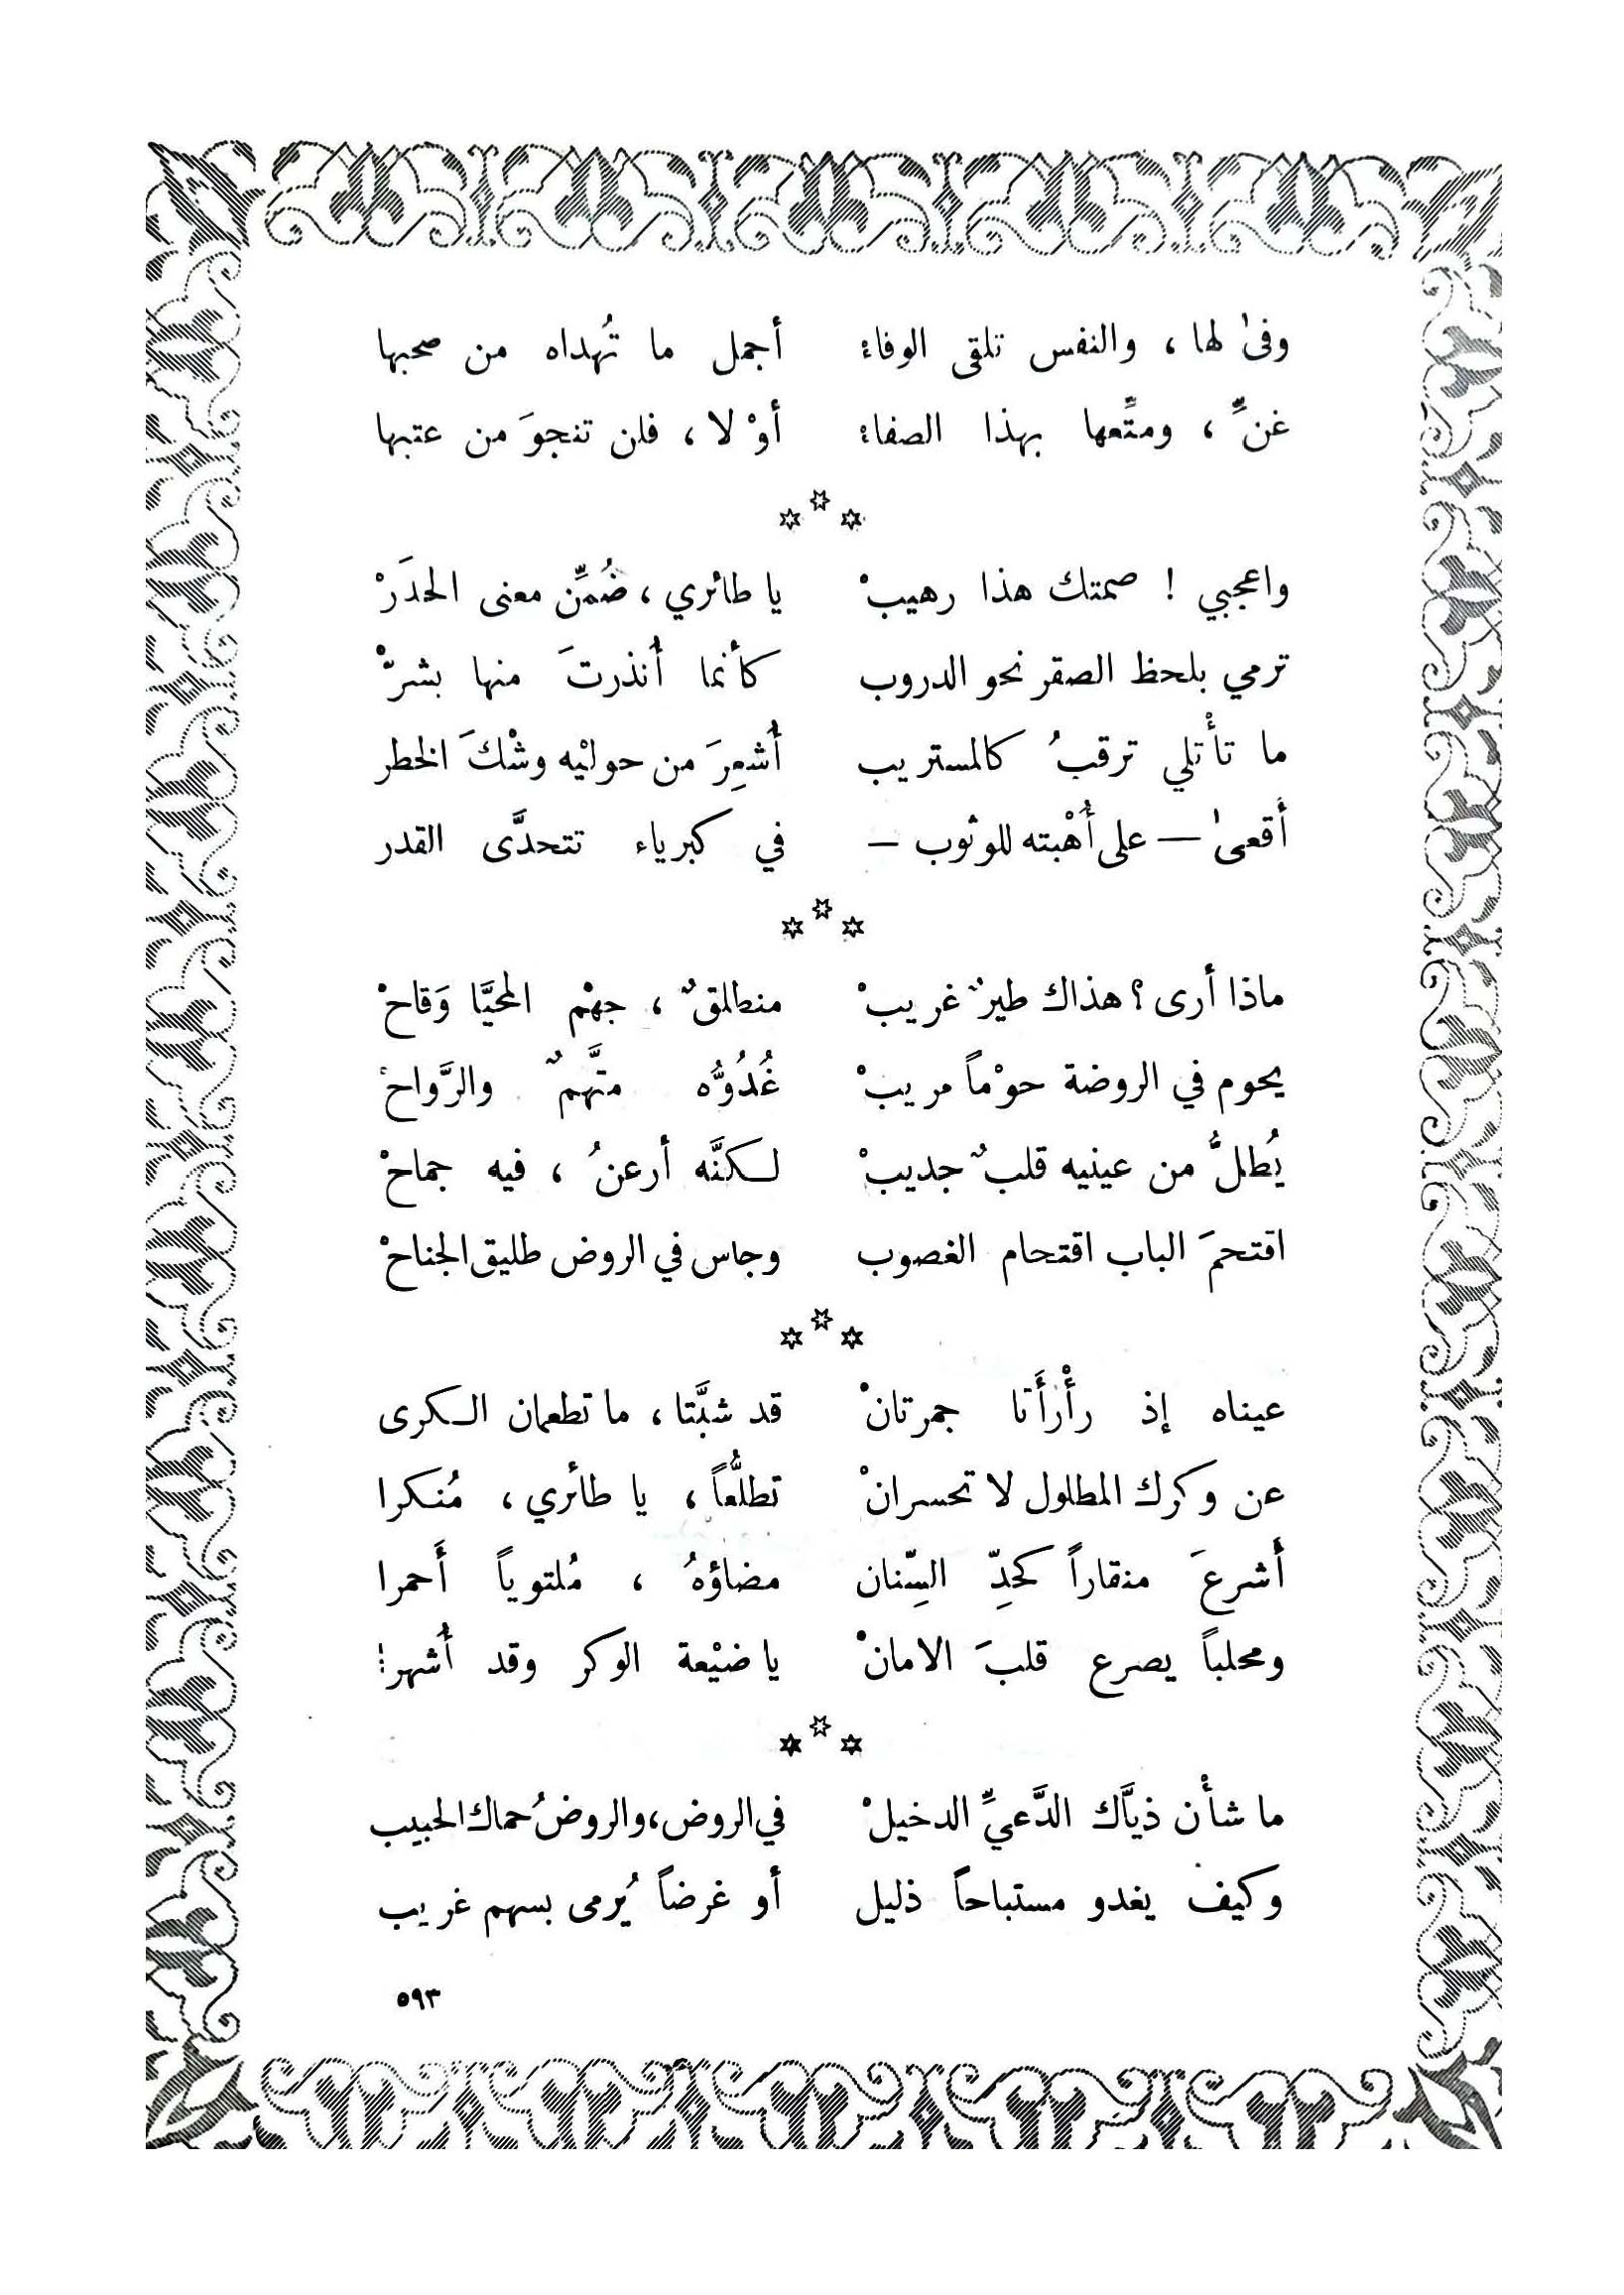 وفىٰ لها ، والنفس تلقى الوفاءْ أجمل ما تُهداه من صحبها
غنِّ ، ومتِّعها بهذا الصفاءْ أوْ لا ، فلن تنجوَ من عتبها
* * *
واعجبي ! صمتك هذا رهيبْ يا طائري ، ضُمِّن معنى الحذَرْ
ترمي بلحظ الصقر نحو الدروب كأنما أُنذرتَ منها بشرّْ
ما تأْتلي ترقبُ كالمستريب أُشعِرَ من حوليْه وشْكَ الخطر
أَقعىٰ — على أُهْبته للوثوب — في كبرياء تتحدَّى القدر
* * *
ماذا أرى ؟ هذاك طيرٌ غريبْ منطلقٌ ، جهْم المحيَّا وَقاحْ
يحوم في الروضة حوْماً مريبْ غُدُوُّه متَّهمٌ والرَّواحْ
يُطلُّ من عينيه قلبٌ جديبْ لكنَّه أرعنُ ، فيه جماحْ
اقتحمَ الباب اقتحام الغصوب وجاس في الروض طليق الجناحْ
* * *
عيناه إذ رأْرأَتا جمرتانْ قد شبَّتا ، ما تطعمان الكرى
عن وكرك المطلول لا تحسرانْ تطلُّعاً ، يا طائري ، مُنكرا
أَشرعَ منقاراً كحدِّ السِّنان مضاؤهُ ، مُلتوياً أَحمرا
ومخلباً يصرع قلبَ الامانْ يا ضيْعة الوكر وقد أُشهرا
* * *
ما شأْن ذيَّاك الدَّعيِّ الدخيلْ في الروض، والروضُ حماك الحبيب
وكيف يغدو مستباحاً ذليل أو غرضاً يُرمى بسهم غريب
٥٩٣